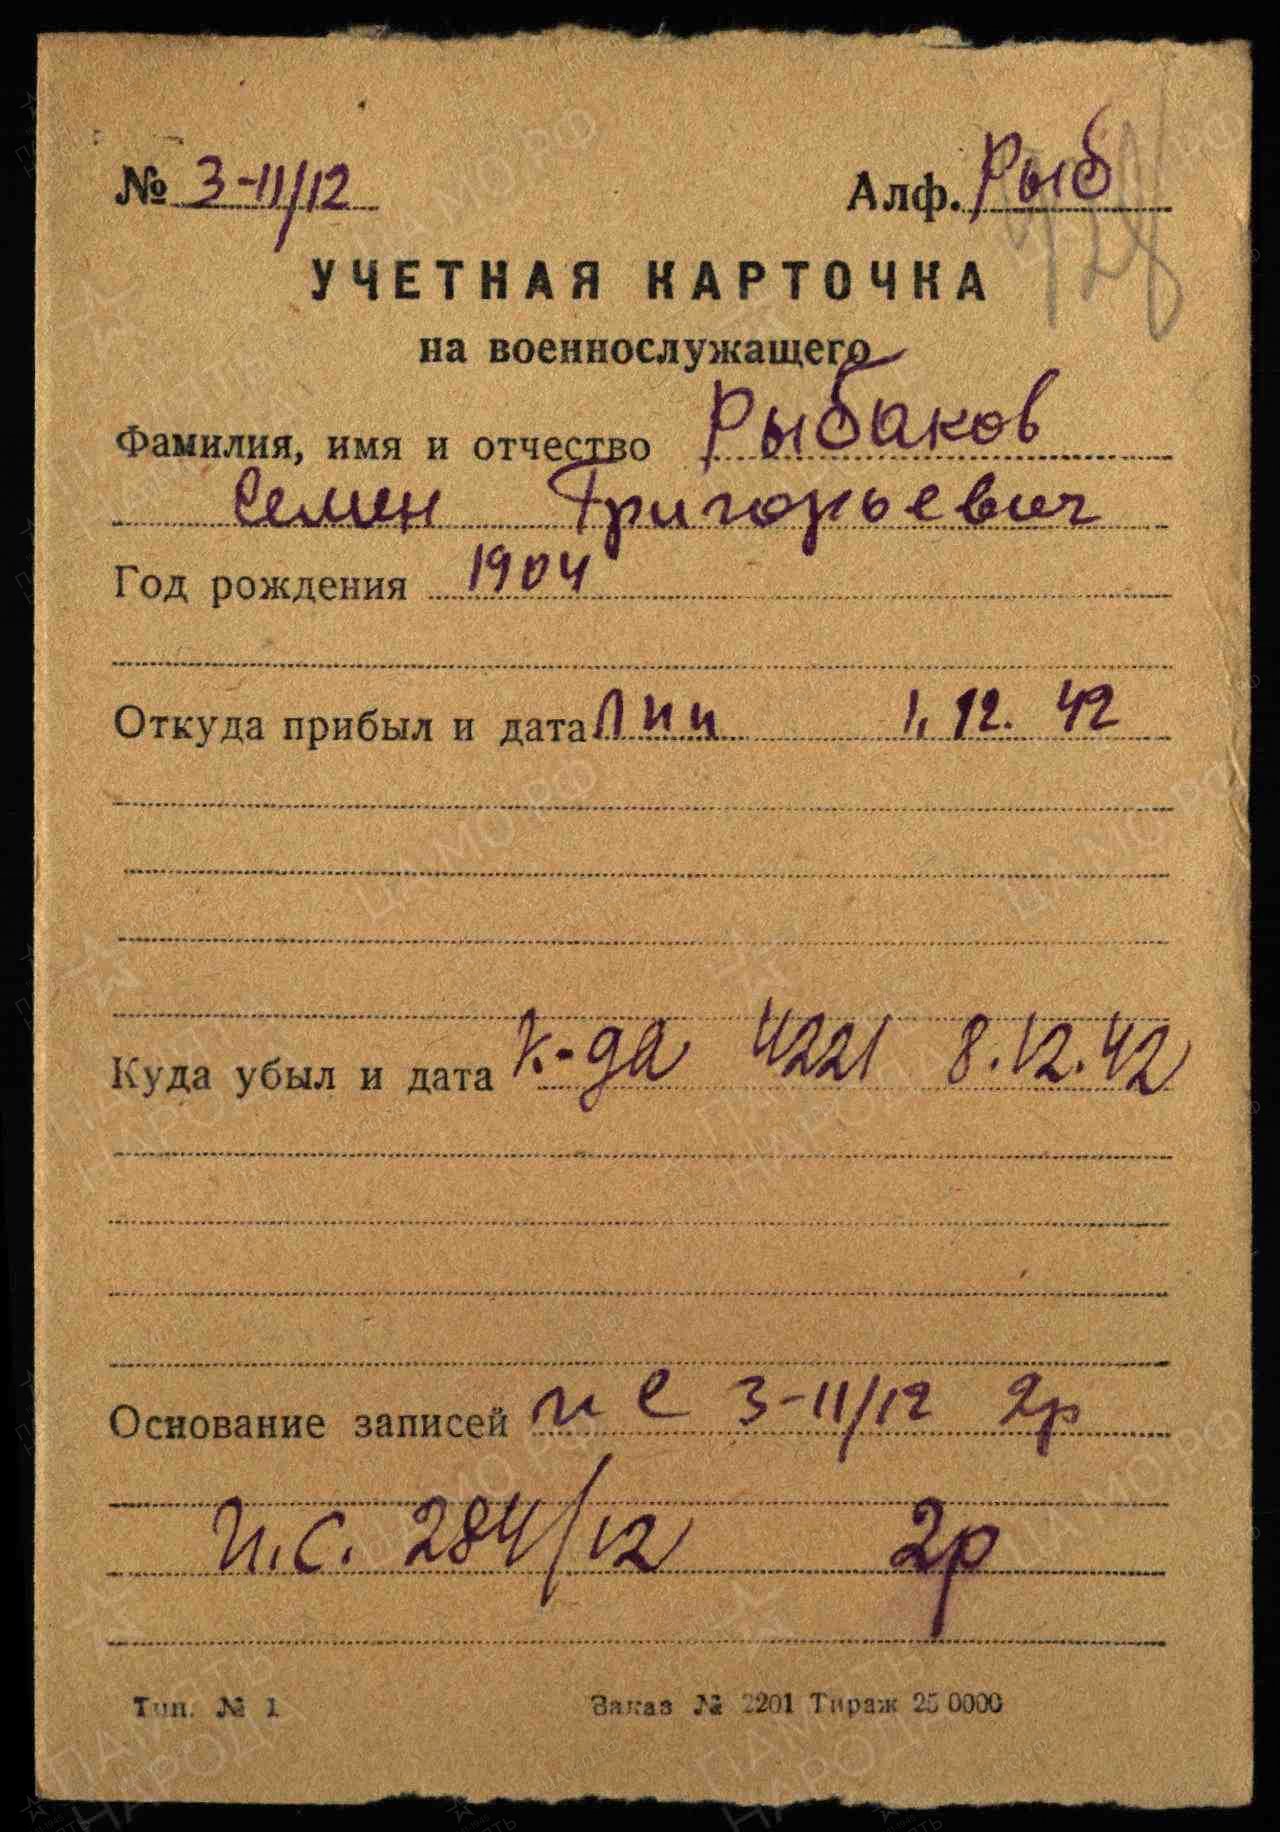 № 3-11/12 Алф. Рыб
УЧЕТНАЯ КАРТОЧКА
на военнослужащего
Фамилия, имя и отчество Рыбаков
Семен Григорьевич
Год рождения 1904
Откуда прибыл и дата 1. 12. 42
Куда убыл и дата к-да 4221 8.12.42
Основание записей и с 3-11/12 2р
И.С. 284/12 2р
Тип. № 1 Заказ № 2201 Тираж 25 0000